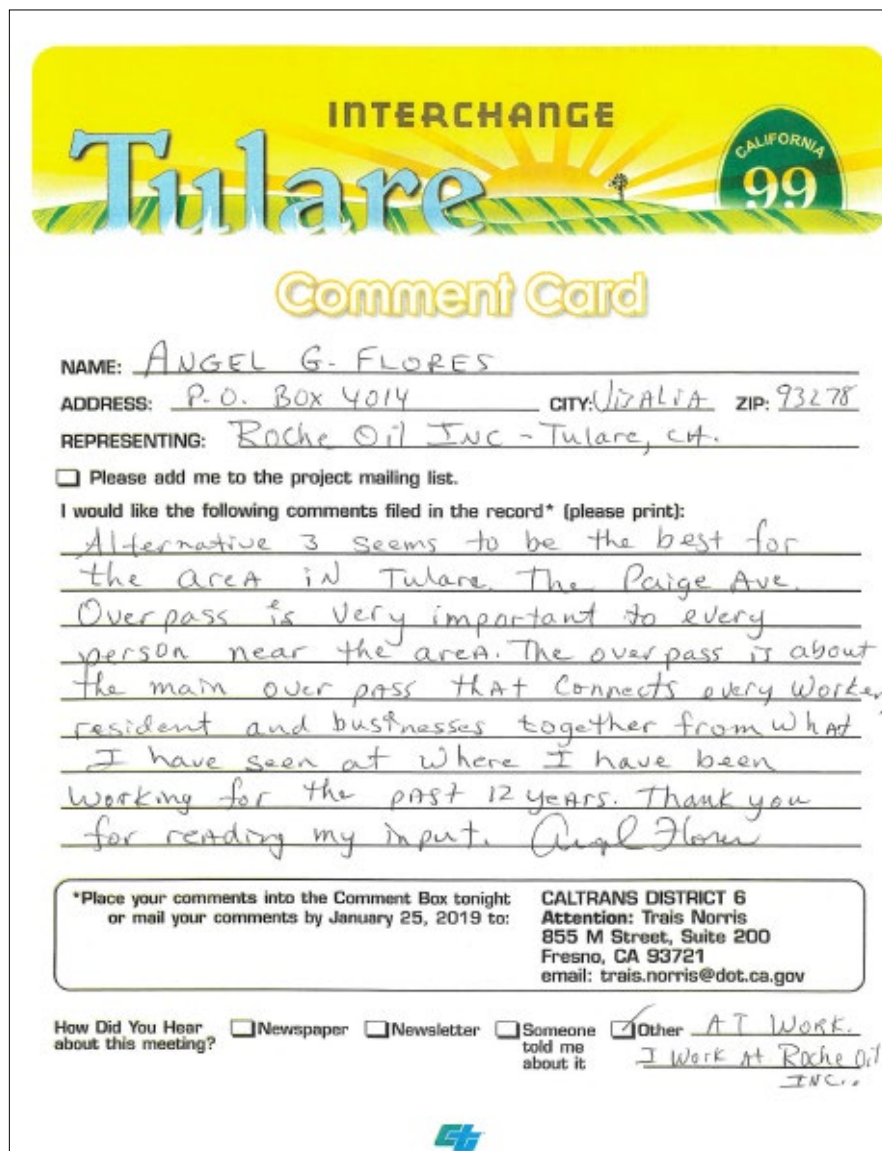 INTERCHANGE
Tulare
CALIFORNIA
99
Comment Card
NAME: ANGEL G. FLORES
ADDRESS: P.O. BOX 4014 CITY: VISALIA ZIP: 93278
REPRESENTING: Roche Oil INC - Tulare, CA.
Please add me to the project mailing list.
I would like the following comments filed in the record* (please print):
Alternative 3 seems to be the best for
the area in Tulare. The Paige Ave.
Overpass is very important to every
person near the area. The overpass is about
the main over pass that connects every worker,
resident and businesses together from what
I have seen at where I have been
working for the past 12 years. Thank you
for reading my input. Angel Flores
*Place your comments into the Comment Box tonight
or mail your comments by January 25, 2019 to:
CALTRANS DISTRICT 6
Attention: Trais Norris
855 M Street, Suite 200
Fresno, CA 93721
email: trais.norris@dot.ca.gov
How Did You Hear about this meeting? Newspaper Newsletter Someone told me about it Other AT WORK.
I work At Roche Oil
INC..